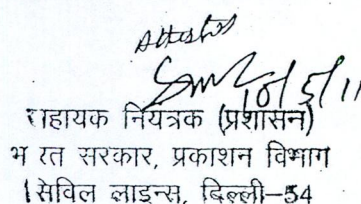 Attested
10/5/11
सहायक नियत्रक (प्रशासन)
भ रत सरकार, प्रकाशन विभाग
सिविल लाइन्स, दिल्ली-54